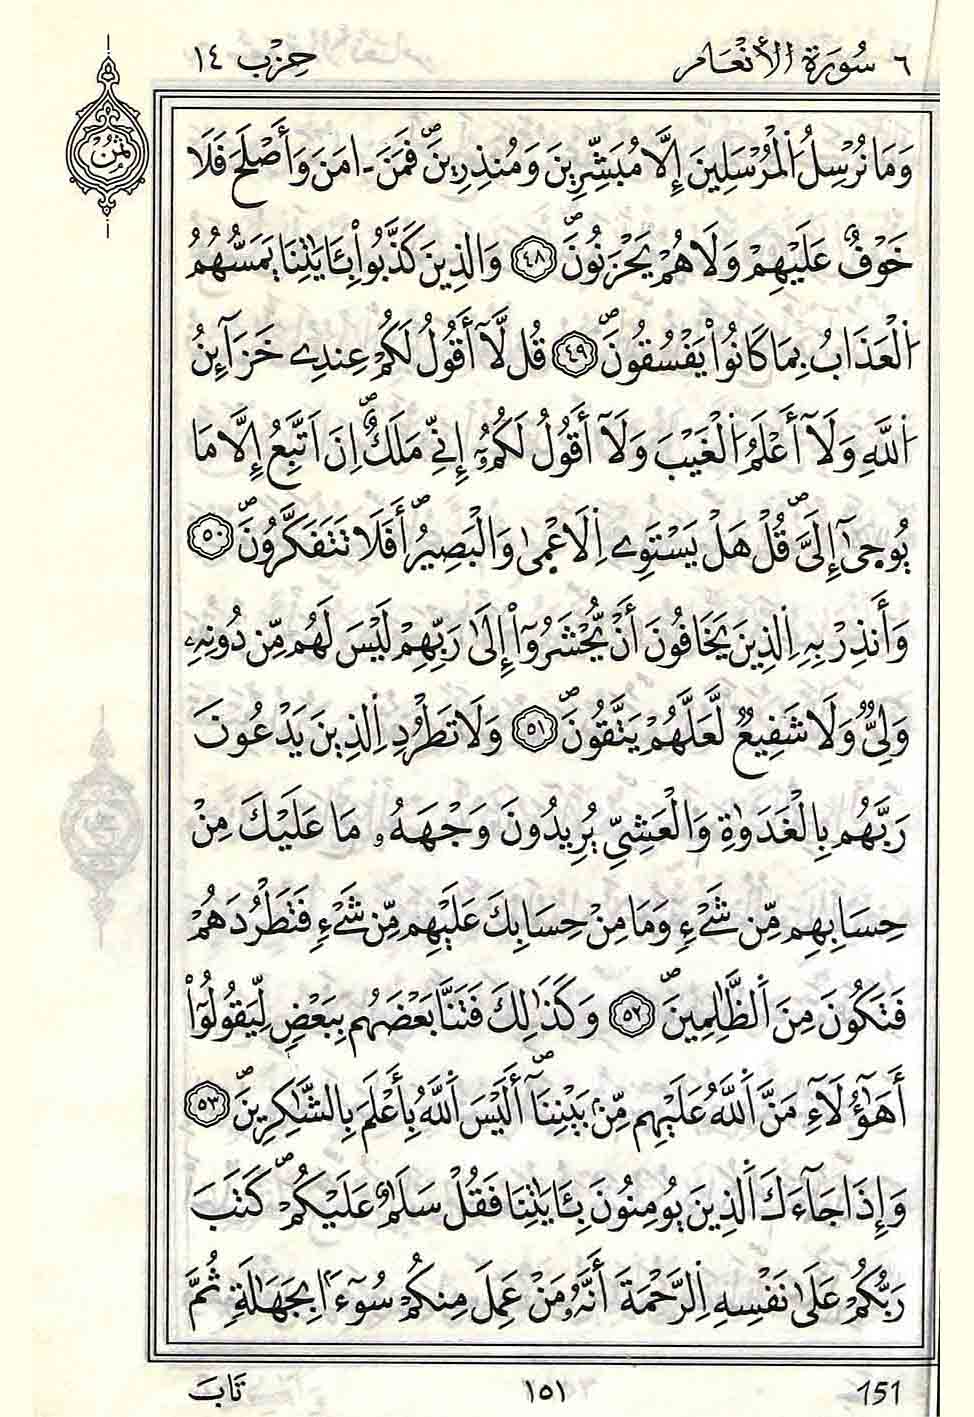 ٦ سُورَةُ الْأَنْعَامِ
حِزْب ١٤
ثمن
وَمَا نُرْسِلُ اُ۬لْمُرْسَلِينَ إِلَّا مُبَشِّرِينَ وَمُنذِرِينَۖ فَمَنَ اٰمَنَ وَأَصْلَحَ فَلَا
خَوْفٌ عَلَيْهِمْ وَلَا هُمْ يَحْزَنُونَۖ ٤٨ وَالذِينَ كَذَّبُواْ بِـَٔايَٰتِنَا يَمَسُّهُمُ
اُ۬لْعَذَابُ بِمَا كَانُواْ يَفْسُقُونَۖ ٤٩ قُل لَّآ أَقُولُ لَكُمْ عِندِے خَزَآئِنُ
اُ۬للَّهِ وَلَآ أَعْلَمُ اُ۬لْغَيْبَ وَلَآ أَقُولُ لَكُمُۥٓ إِنِّے مَلَكٌۖ اِنَ اَتَّبِعُ إِلَّا مَا
يُوحىٰٓ إِلَيَّۖ قُلْ هَلْ يَسْتَوِے اِ۬لَاعْمىٰ وَالْبَصِيرُۖ أَفَلَا تَتَفَكَّرُونَۖ ٥٠
وَأَنذِرْ بِهِ اِ۬لذِينَ يَخَافُونَ أَنْ يُّحْشَرُوٓاْ إِلَىٰ رَبِّهِمْ لَيْسَ لَهُم مِّن دُونِهِۦ
وَلِيٌّ وَلَا شَفِيعٌ لَّعَلَّهُمْ يَتَّقُونَۖ ٥١ وَلَا تَطْرُدِ اِ۬لذِينَ يَدْعُونَ
رَبَّهُم بِالْغَدَوٰةِ وَالْعَشِيِّ يُرِيدُونَ وَجْهَهُۥ مَا عَلَيْكَ مِنْ
حِسَابِهِم مِّن شَےْءٖ وَمَا مِنْ حِسَابِكَ عَلَيْهِم مِّن شَےْءٖ فَتَطْرُدَهُمْ
فَتَكُونَ مِنَ اَ۬لظَّٰلِمِينَۖ ٥٢ وَكَذَٰلِكَ فَتَنَّا بَعْضَهُم بِبَعْضٖ لِّيَقُولُوٓاْ
أَهَٰٓؤُلَآءِ مَنَّ اَ۬للَّهُ عَلَيْهِم مِّنۢ بَيْنِنَآۖ أَلَيْسَ اَ۬للَّهُ بِأَعْلَمَ بِالشَّٰكِرِينَۖ ٥٣
وَإِذَا جَآءَكَ اَ۬لذِينَ يُومِنُونَ بِـَٔايَٰتِنَا فَقُلْ سَلَٰمٌ عَلَيْكُمْۖ كَتَبَ
رَبُّكُمْ عَلَىٰ نَفْسِهِ اِ۬لرَّحْمَةَ أَنَّهُۥ مَنْ عَمِلَ مِنكُمْ سُوٓءاَۢ بِجَهَٰلَةٖ ثُمَّ
151
١٥١
تَابَ